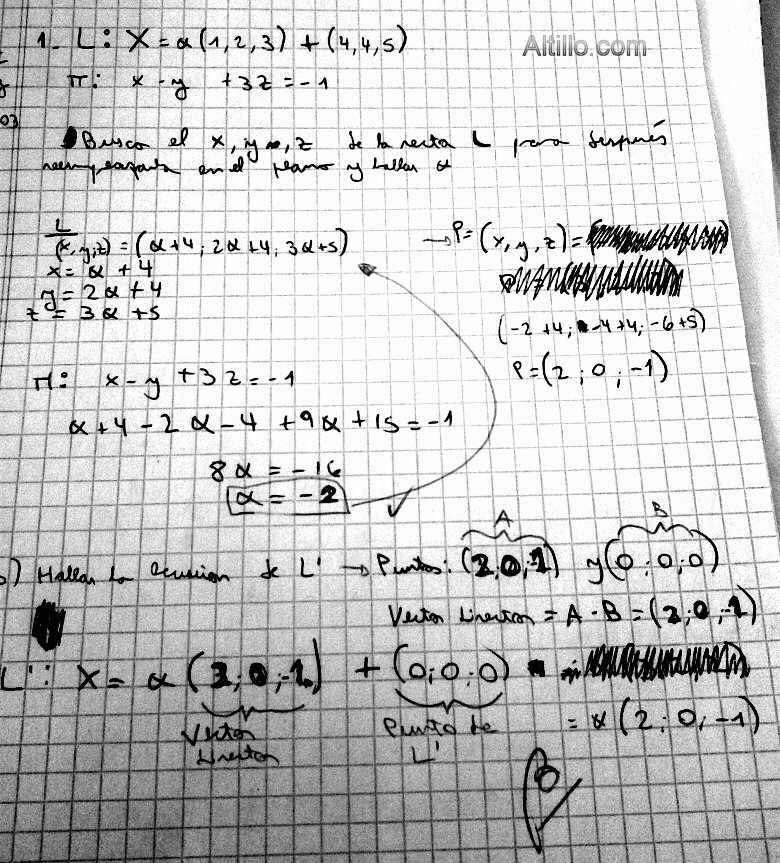 1- L: X = α(1,2,3) + (4,4,5)
Altillo.com
π: x - y + 3z = -1
03
Busco el x, y, z de la recta L para después
reemplazarla en el plano y hallar α
L
(x,y,z) = (α+4; 2α+4; 3α+5)
→ P = (x, y, z) =
x = α + 4
y = 2α + 4
z = 3α + 5
(-2+4; -4+4; -6+5)
P = (2; 0; -1)
π: x - y + 3z = -1
α + 4 - 2α - 4 + 9α + 15 = -1
8α = -16
α = -2 ✓
A B
b) Hallar la ecuacion de L' → Puntos: (2,0,-1) y (0;0;0)
Vector Director = A - B = (2;0,-1)
L': X = α (2;0;-1) + (0;0;0)
= α (2; 0; -1)
Vector
Director
Punto de
L'
B